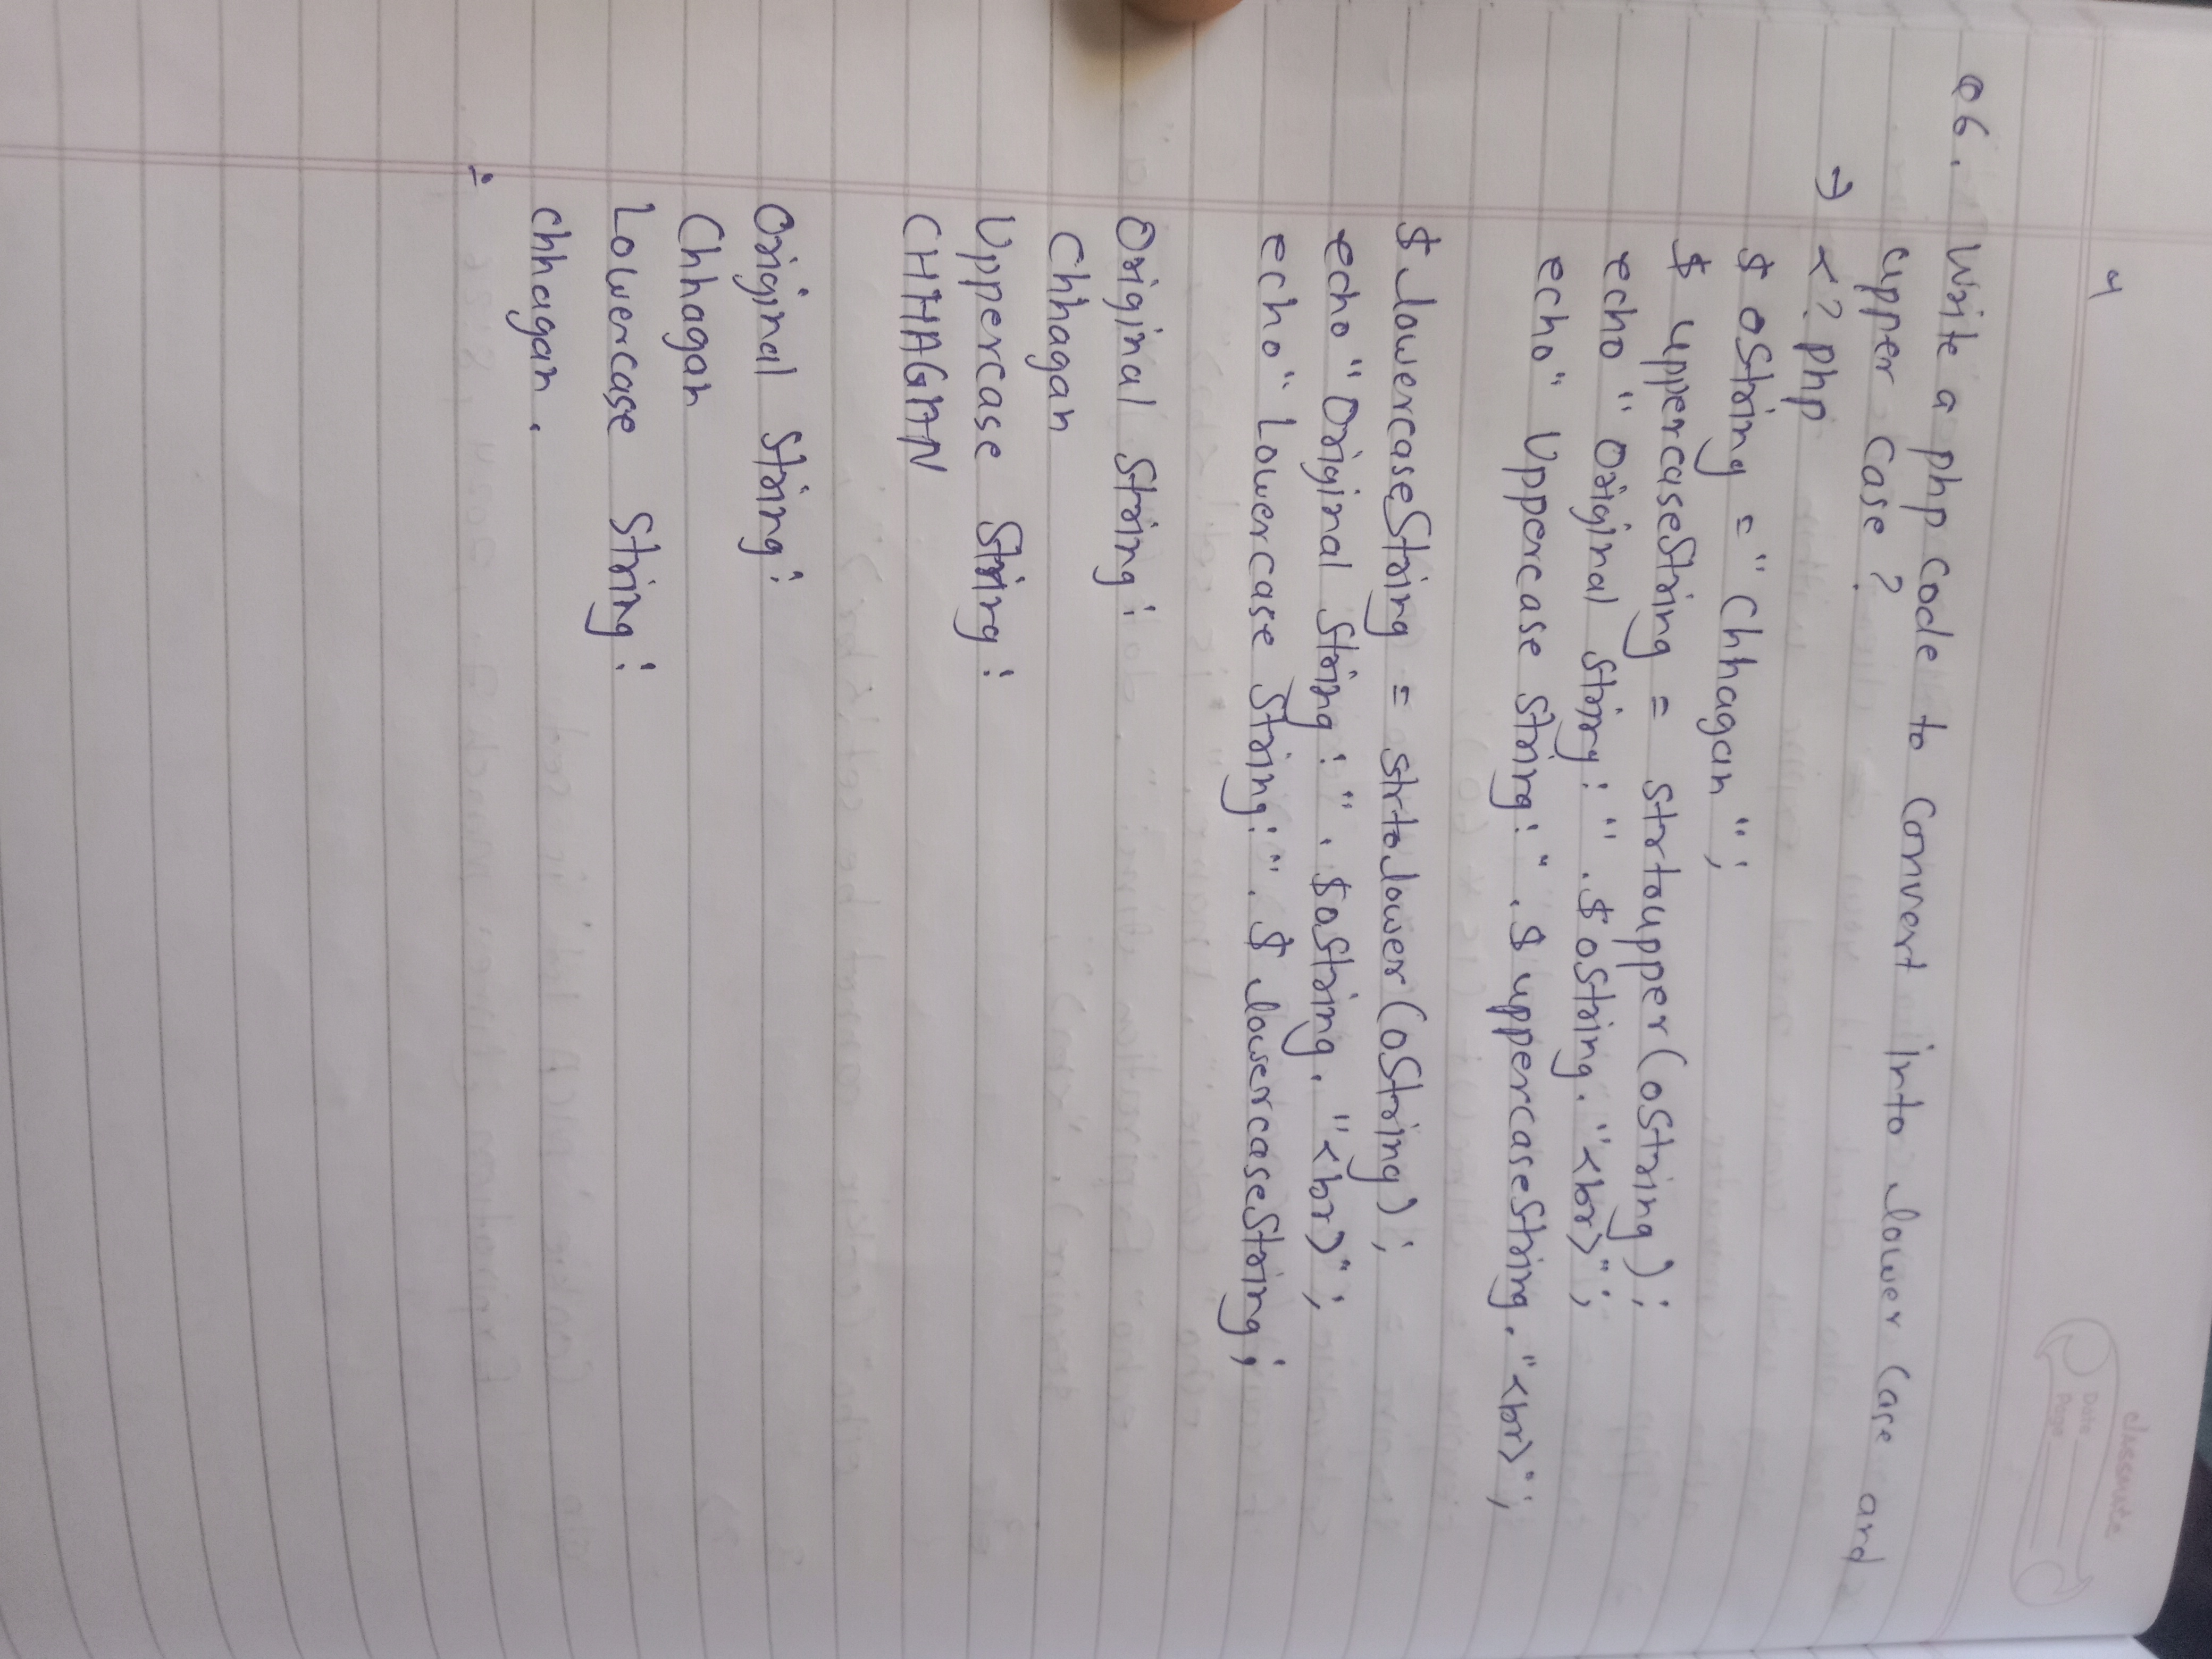 4
classmate
Date
Page
Q6. Write a php code to convert into lower case and
upper case ?
→ <? php
$ oString = "Chhagan";
$ uppercaseString = strtoupper(oString);
echo "Original String:" . $oString. "<br>";
echo "Uppercase String:" . $uppercaseString. "<br>";
$ lowercaseString = strtolower(oString);
echo "Original String:" . $oString. "<br>";
echo "Lowercase String:" . $lowercaseString;
Original String:
Chhagan
Uppercase String:
CHHAGAN
Original String:
Chhagan
Lowercase String:
chhagan.